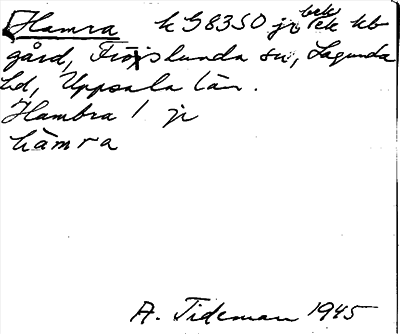 Hamra k G8350 jr bek Tek kb
gård, Fröslunda sn, Lagunda
hd, Uppsala län.
Hambra! jr
hamra
A. Tideman 1945